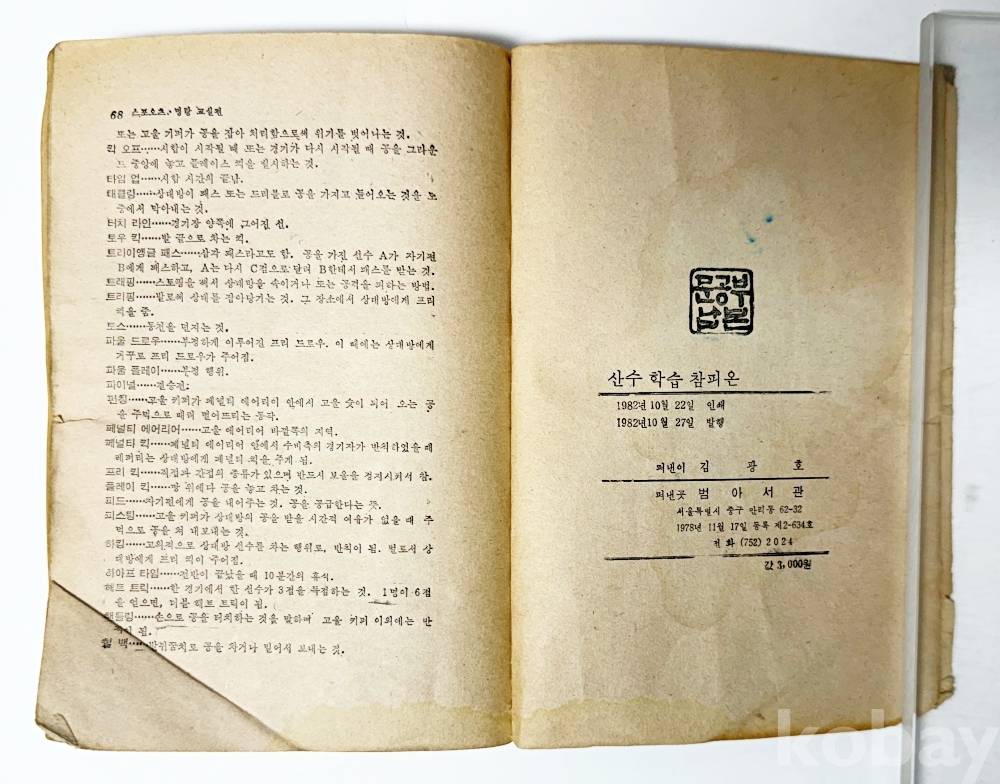 68 스포오츠·명랑 교실편
또는 고울 키퍼가 공을 잡아 처리함으로써 위기를 벗어나는 것.
킥 오프……시합이 시작될 때 또는 경기가 다시 시작될 때 공을 그라운
드 중앙에 놓고 플레이스 킥을 실시하는 것.
타임 업……시합 시간의 끝남.
태클링……상대방이 패스 또는 드리블로 공을 가지고 들어오는 것을 도
중에서 막아내는 것.
터치 라인……경기장 양쪽에 그어진 선.
토우 킥……발 끝으로 차는 킥.
트라이앵글 패스……삼각 패스라고도 함. 공을 가진 선수 A가 자기편
B에게 패스하고, A는 다시 C점으로 달려 B한테서 패스를 받는 것.
트래핑……스토핑을 해서 상대방을 속이거나 또는 공격을 피하는 방법.
트리핑……발로써 상대를 잡아당기는 것. 그 장소에서 상대방에게 프리
킥을 줌.
토스……동전을 던지는 것.
파울 드로우……부정하게 이루어진 프리 드로우. 이 때에는 상대방에게
거꾸로 프리 드로우가 주어짐.
파울 플레이……부정 행위.
파이널……결승전.
펀칭……고울 키퍼가 페널티 에어리어 안에서 고울 슛이 되어 오는 공
을 주먹으로 때려 떨어뜨리는 동작.
페널티 에어리어……고울 에어리어 바깥쪽의 지역.
페널티 킥……페널티 에어리어 안에서 수비측의 경기자가 반칙하였을 때
레퍼리는 상대방에게 페널티 킥을 주게 됨.
프리 킥……직접과 간접의 종류가 있으며 반드시 보올을 정지시켜서 참.
플레이 킥……땅 위에다 공을 놓고 차는 것.
피드……자기편에게 공을 내어주는 것. 공을 공급한다는 뜻.
피스팅……고울 키퍼가 상대방의 공을 받을 시간적 여유가 없을 때 주
먹으로 공을 쳐 내보내는 것.
하킹……고의적으로 상대방 선수를 차는 행위로, 반칙이 됨. 벌로서 상
대방에게 프리 킥이 주어짐.
하아프 타임……전반이 끝났을 때 10분간의 휴식.
해트 트릭……한 경기에서 한 선수가 3점을 득점하는 것. 1명이 6점
을 얻으면, 더블 해트 트릭이 됨.
핸들링……손으로 공을 터치하는 것을 말하며 고울 키퍼 이외에는 반
칙이 됨.
힐 백……발뒤꿈치로 공을 차거나 밀어서 보내는 것.
문공부
납본
산수 학습 참피온
1982년 10월 22일 인쇄
1982년 10월 27일 발행
펴낸이 김 광 호
펴낸곳 범 아 서 관
서울특별시 중구 만리동 62-32
1978년 11월 17일 등록 제2-634호
전화 (752) 2024
값 3,000원
kobay